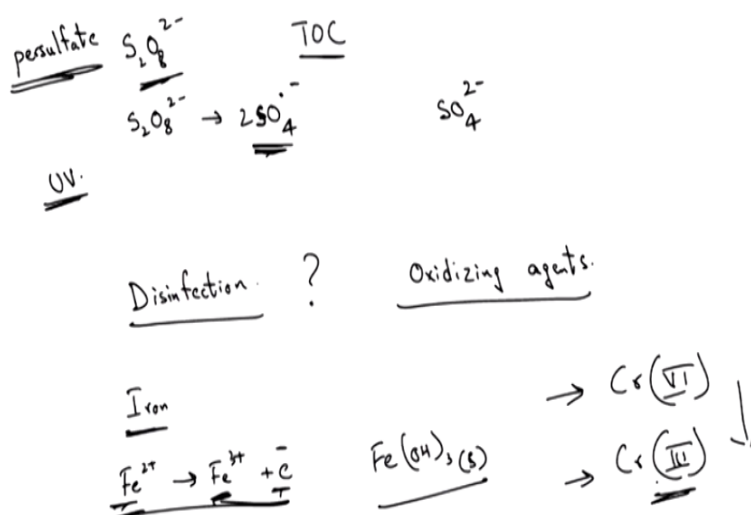 persulfate S₂O₈²⁻ TOC
S₂O₈²⁻ → 2SO₄•⁻ SO₄²⁻
UV.
Disinfection. ? Oxidizing agents.
Iron → Cr(VI)
Fe²⁺ → Fe³⁺ + e⁻ Fe(OH)₃(s) → Cr(III)